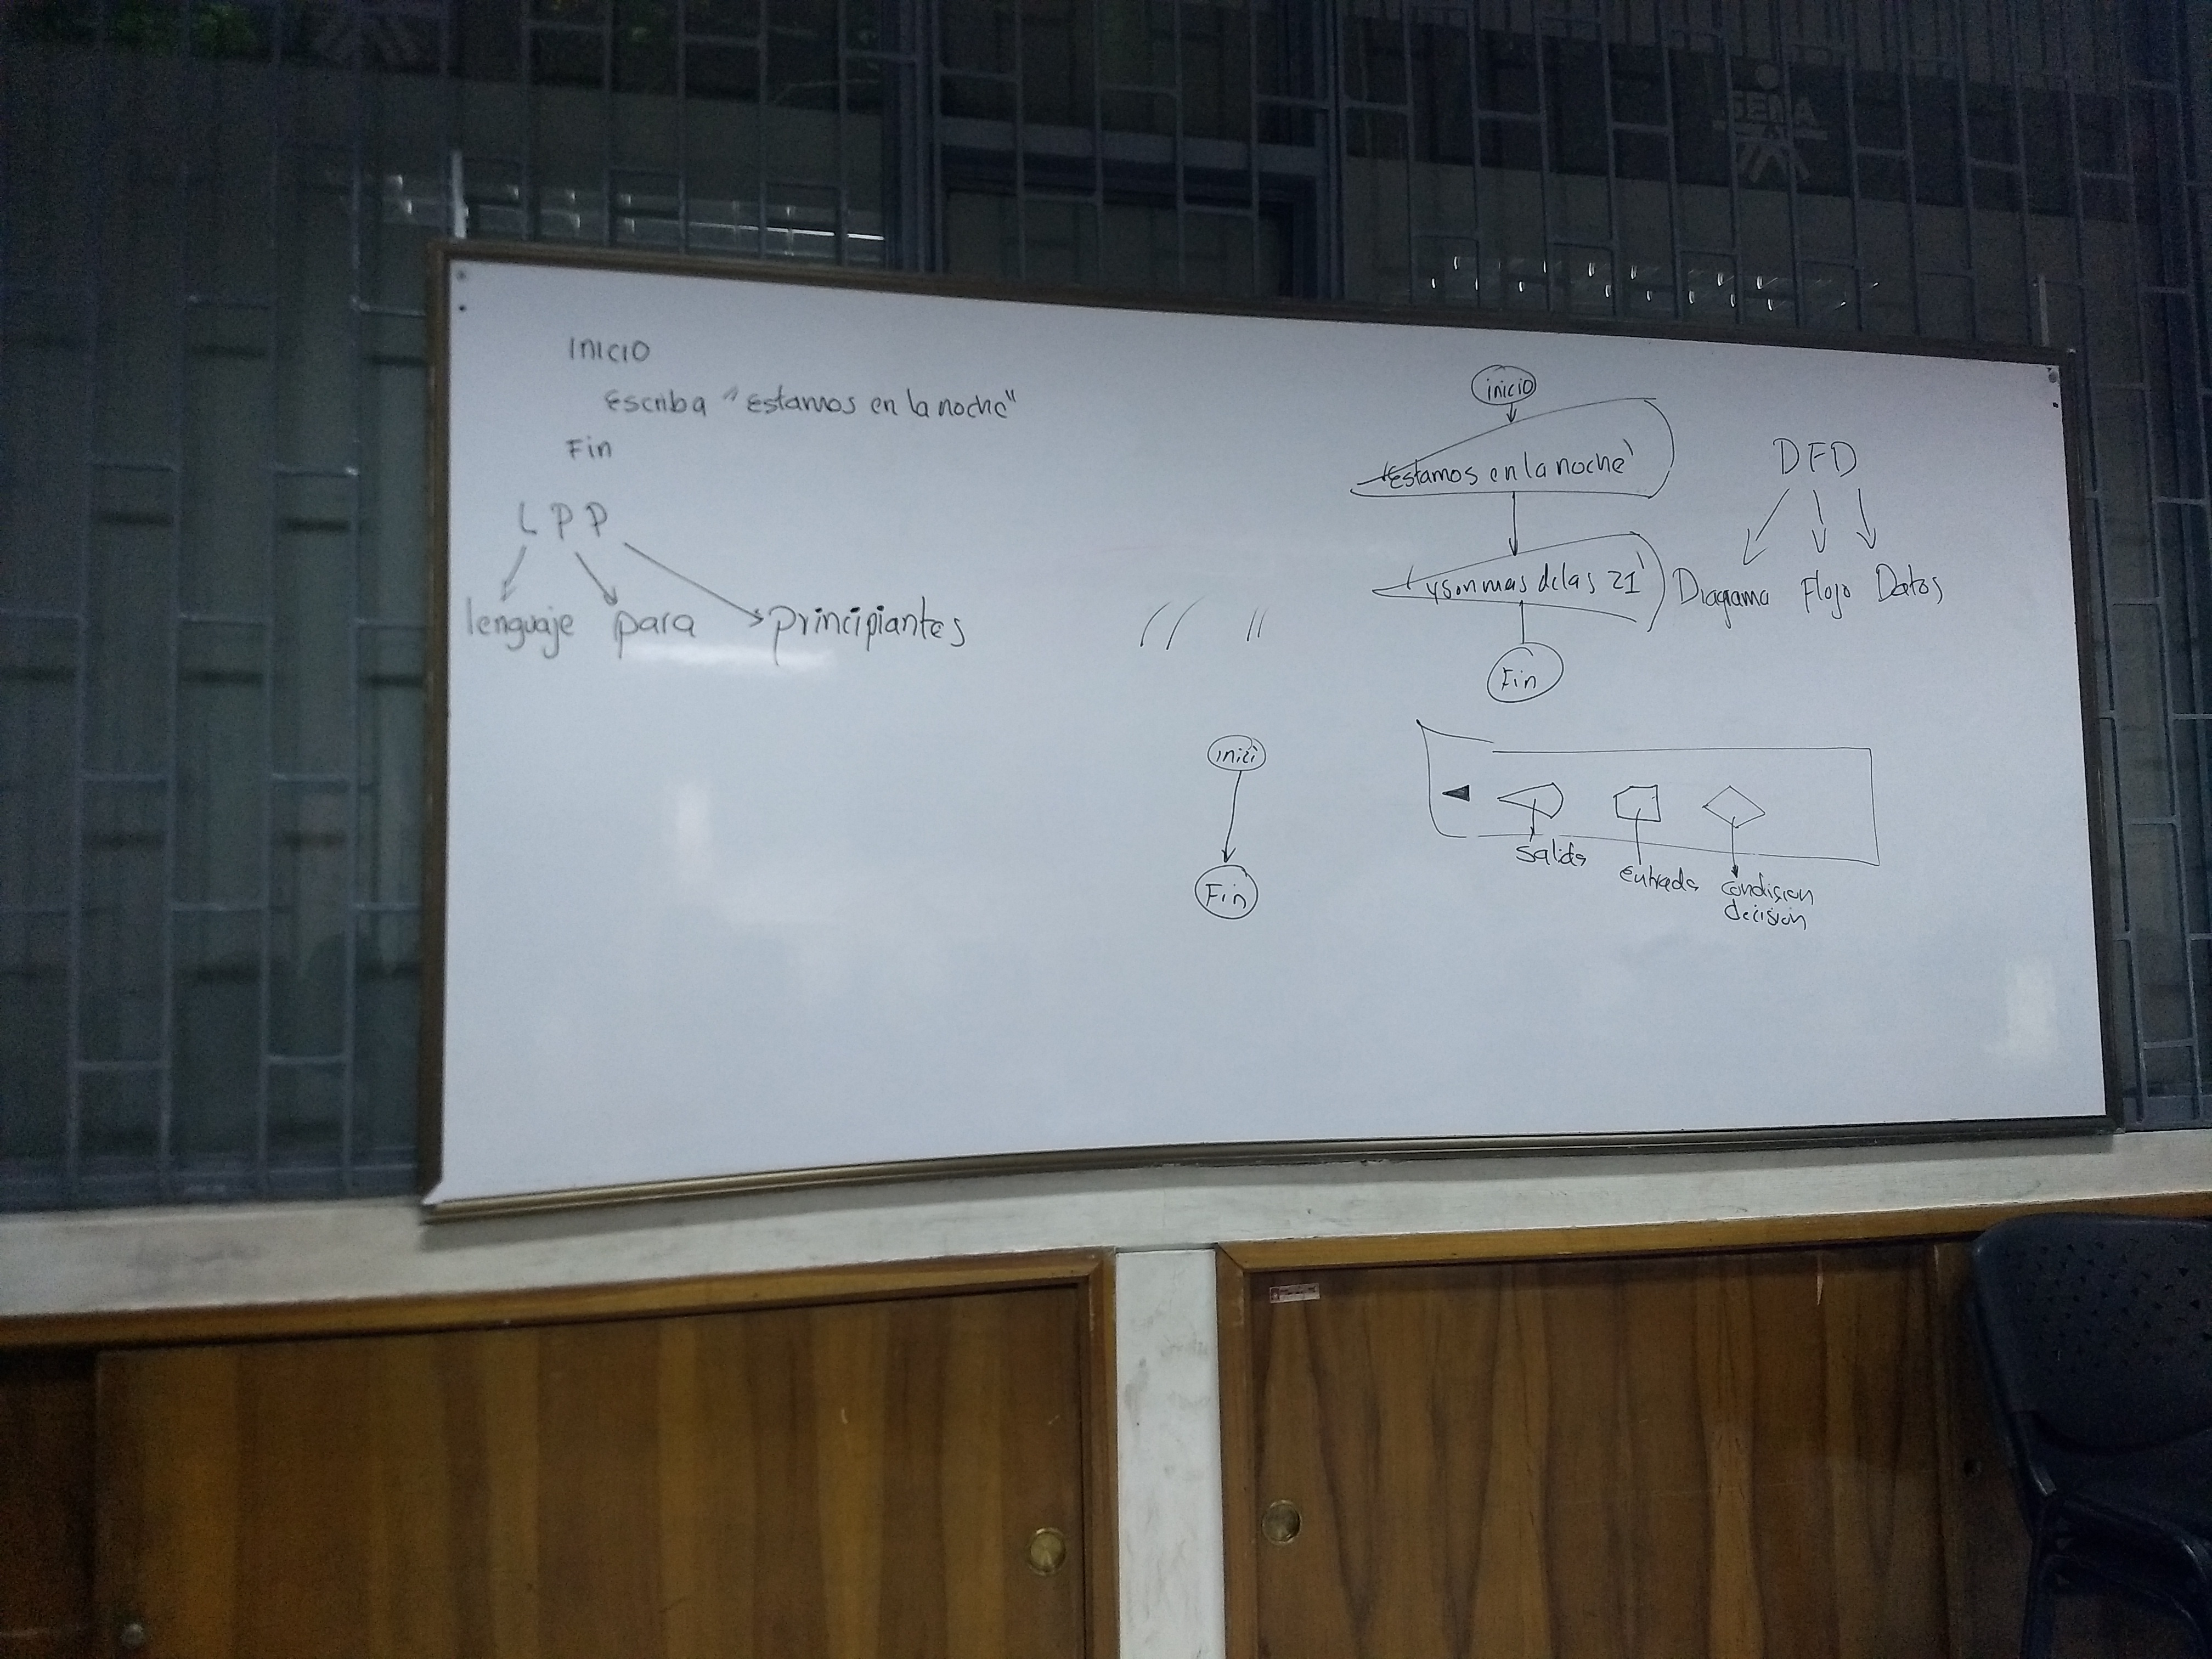 INICIO
Escriba "Estamos en la noche"
Fin
LPP
lenguaje para principiantes
inicio
'Estamos en la noche'
'y son mas de las 21'
Fin
DFD
Diagrama Flojo Datos
inici
Fin
Salida
entrada
condision
decision
SENA